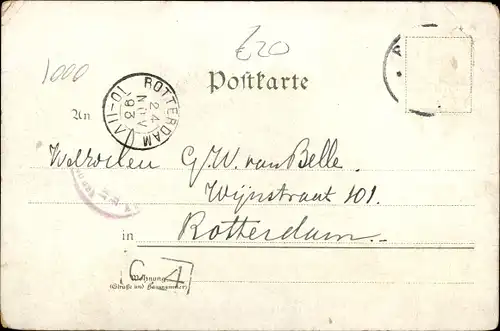 £20
1000
Postkarte
ROTTERDAM
VII-OI
24
NOV
93
An
G.W. van Belle.
Wijnstraat 101.
in Rotterdam.
C 4
Wohnung
(Straße und Hausnummer)